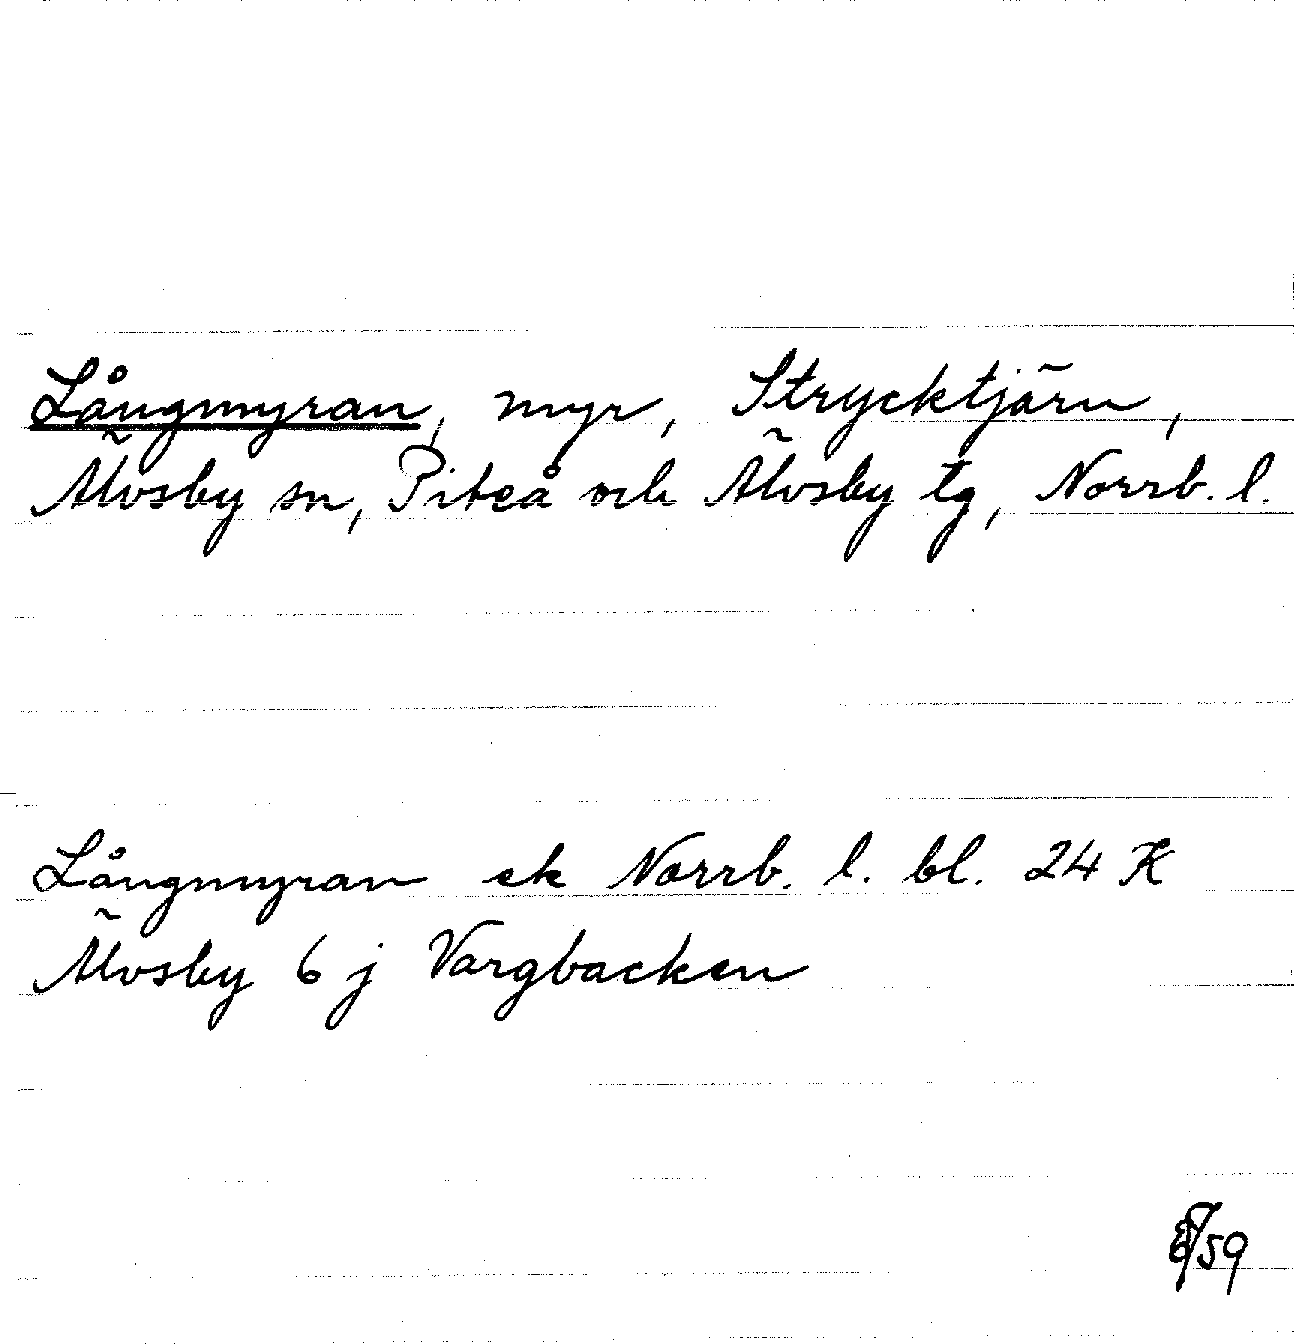 Långmyran, myr, Strycktjärn,
Älvsby sn, Piteå och Älvsby tg, Norrb. l.
Långmyran ek Norrb. l. bl. 24 K
Älvsby 6 j Vargbacken
/59